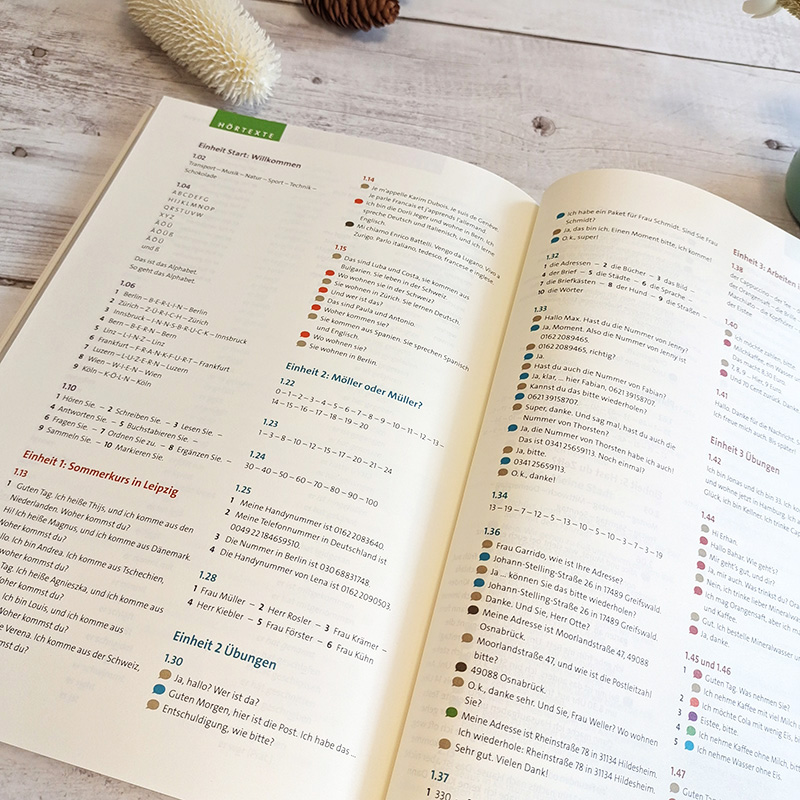 HÖRTEXTE
Einheit Start: Willkommen
1.02
Transport – Musik – Natur – Sport – Technik –
Schokolade
1.04
A B C D E F G
H I J K L M N O P
Q R S T U V W
X Y Z
Ä Ö Ü
Ä Ö Ü ß
Ä Ö Ü
und ß
Das ist das Alphabet.
So geht das Alphabet.
1.06
1 Berlin – B-E-R-L-I-N – Berlin
2 Zürich – Z-Ü-R-I-C-H – Zürich
3 Innsbruck – I-N-N-S-B-R-U-C-K – Innsbruck
4 Bern – B-E-R-N – Bern
5 Linz – L-I-N-Z – Linz
6 Frankfurt – F-R-A-N-K-F-U-R-T – Frankfurt
7 Luzern – L-U-Z-E-R-N – Luzern
8 Wien – W-I-E-N – Wien
9 Köln – K-Ö-L-N – Köln
1.10
1 Hören Sie. – 2 Schreiben Sie. – 3 Lesen Sie. –
4 Antworten Sie. – 5 Buchstabieren Sie. –
6 Fragen Sie. – 7 Ordnen Sie zu. – 8 Ergänzen Sie. –
9 Sammeln Sie. – 10 Markieren Sie.
Einheit 1: Sommerkurs in Leipzig
1.13
1 Guten Tag. Ich heiße Thijs, und ich komme aus den
Niederlanden. Woher kommst du?
Hi! Ich heiße Magnus, und ich komme aus Dänemark.
Woher kommst du?
Ich bin Andrea. Ich komme aus Tschechien,
woher kommst du?
Tag. Ich heiße Agnieszka, und ich komme aus
Woher kommst du?
Ich bin Louis, und ich komme aus
Woher kommst du?
Verena. Ich komme aus der Schweiz,
du?
1.14
Je m'appelle Karim Dubois. Je suis de Genève.
Je parle Francais et j'apprends l'allemand.
Ich bin die Doris Jeger und wohne in Bern. Ich
spreche Deutsch und Italienisch, und ich lerne
Englisch.
Mi chiamo Enrico Battelli. Vengo da Lugano. Vivo a
Zurigo. Parlo italiano, tedesco, francese e inglese.
1.15
Das sind Luba und Costa, sie kommen aus
Bulgarien. Sie leben in der Schweiz.
Wo wohnen sie in der Schweiz?
Sie wohnen in Zürich. Sie lernen Deutsch.
Und wer ist das?
Das sind Paula und Antonio.
Woher kommen sie?
Sie kommen aus Spanien. Sie sprechen Spanisch
und Englisch.
Wo wohnen sie?
Sie wohnen in Berlin.
Einheit 2: Möller oder Müller?
1.22
0 – 1 – 2 – 3 – 4 – 5 – 6 – 7 – 8 – 9 – 10 – 11 – 12 – 13 –
14 – 15 – 16 – 17 – 18 – 19 – 20
1.23
1 – 3 – 8 – 10 – 12 – 15 – 17 – 20 – 21 – 24
1.24
30 – 40 – 50 – 60 – 70 – 80 – 90 – 100
1.25
1 Meine Handynummer ist 0162 2083640.
2 Meine Telefonnummer in Deutschland ist
0049 22184659510.
3 Die Nummer in Berlin ist 030 68831748.
4 Die Handynummer von Lena ist 0162 2090503.
1.28
1 Frau Müller – 2 Herr Rosler – 3 Frau Krämer –
4 Herr Kiebler – 5 Frau Förster – 6 Frau Kühn
Einheit 2 Übungen
1.30
Ja, hallo? Wer ist da?
Guten Morgen, hier ist die Post. Ich habe das ...
Entschuldigung, wie bitte?
Ich habe ein Paket für Frau Schmidt. Sind Sie Frau
Schmidt?
Ja, das bin ich. Einen Moment bitte, ich komme!
O.k., super!
1.32
1 die Adressen – 2 die Bücher – 3 das Bild –
4 der Brief – 5 die Städte – 6 die Sprache –
7 die Briefkästen – 8 der Hund – 9 die Straßen –
10 die Wörter
1.33
Hallo Max. Hast du die Nummer von Jenny?
Ja, Moment. Also die Nummer von Jenny ist
0162 2089465.
0162 2089465, richtig?
Ja.
Hast du auch die Nummer von Fabian?
Ja, klar, ... hier Fabian, 062139158707.
Kannst du das bitte wiederholen?
062139158707.
Super, danke. Und sag mal, hast du auch die
Nummer von Thorsten?
Ja, die Nummer von Thorsten habe ich auch!
Das ist 03412659113. Noch einmal?
Ja, bitte.
03412659113.
O.k., danke!
1.34
13 – 19 – 7 – 12 – 5 – 13 – 10 – 5 – 10 – 3 – 7 – 3 – 19
1.36
Frau Garrido, wie ist Ihre Adresse?
Johann-Stelling-Straße 26 in 17489 Greifswald.
Ja ... können Sie das bitte wiederholen?
Johann-Stelling-Straße 26 in 17489 Greifswald.
Danke. Und Sie, Herr Otte?
Meine Adresse ist Moorlandstraße 47, 49088
Osnabrück.
Moorlandstraße 47, und wie ist die Postleitzahl
bitte?
49088 Osnabrück.
O.k., danke sehr. Und Sie, Frau Weller? Wo wohnen
Sie?
Meine Adresse ist Rheinstraße 78 in 31134 Hildesheim.
Ich wiederhole: Rheinstraße 78 in 31134 Hildesheim.
Sehr gut. Vielen Dank!
1.37
1 330
Einheit 3: Arbeiten
1.38
der Cappuccino – der Tee
die Orangensaft – die
Milch
der Eistee
1.40
Ich möchte zahlen, bitte.
Milchkaffee
Das macht 8,39 Euro.
7, 8, 9 Euro
Und 70 Cent zurück. Danke
1.41
Hallo. Danke für die Nachricht.
Ich freue mich auch. Bis später!
Einheit 3 Übungen
1.42
Ich bin Jonas und ich bin 33. Ich
und wohne jetzt in Hamburg. Ich
Glück, ich bin Kellner. Ich trinke
1.44
Hi Erhan.
Hallo Bahar. Wie geht's?
Mir geht's gut, und dir?
Ja, mir auch. Was trinkst du?
Nein, ich trinke lieber Mineralwasser
Ich mag Orangensaft, aber ich
und Kaffee.
Gut. Ich bestelle Mineralwasser
Ja, danke.
1.45 und 1.46
1 Guten Tag. Was nehmen Sie?
Ich nehme Kaffee mit viel Milch
2 Ich möchte Cola mit wenig Eis,
3 Eistee, bitte.
4 Ich nehme Kaffee ohne Milch, bitte.
5 Ich nehme Wasser ohne Eis.
1.47
Guten Tag